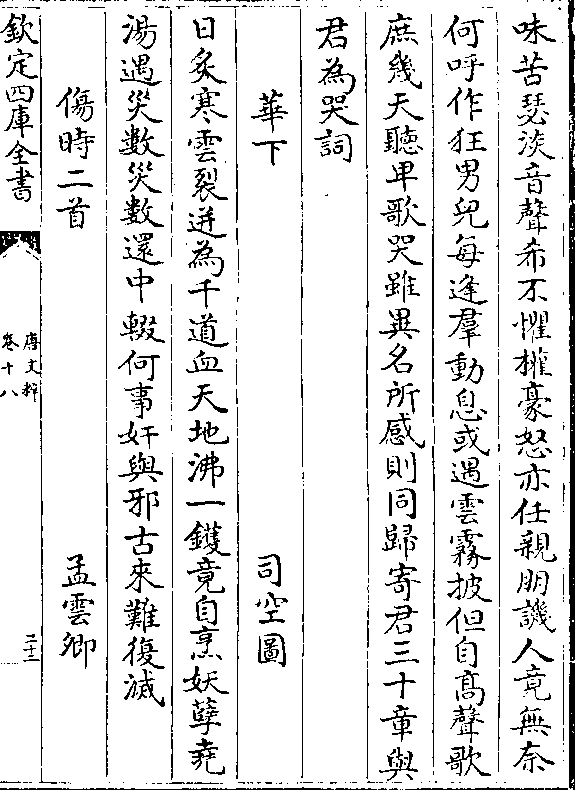 味苦瑟淡音聲希不懼權豪怒亦任親朋譏人竟無奈
何呼作狂男兒每逢羣動息或遇雲霧披但自髙聲歌
庶幾天聽卑歌哭雖異名所感則同歸寄君三十章與
君為哭詞
華下 司空圖
日炙寒雲裂迸為千道血天地沸一鑊竟自烹妖孽堯
湯遇災數災數還中輟何事奸與邪古來難復滅
傷時二首 孟雲卿
欽定四庫全書
唐文粹
卷十八
二十二